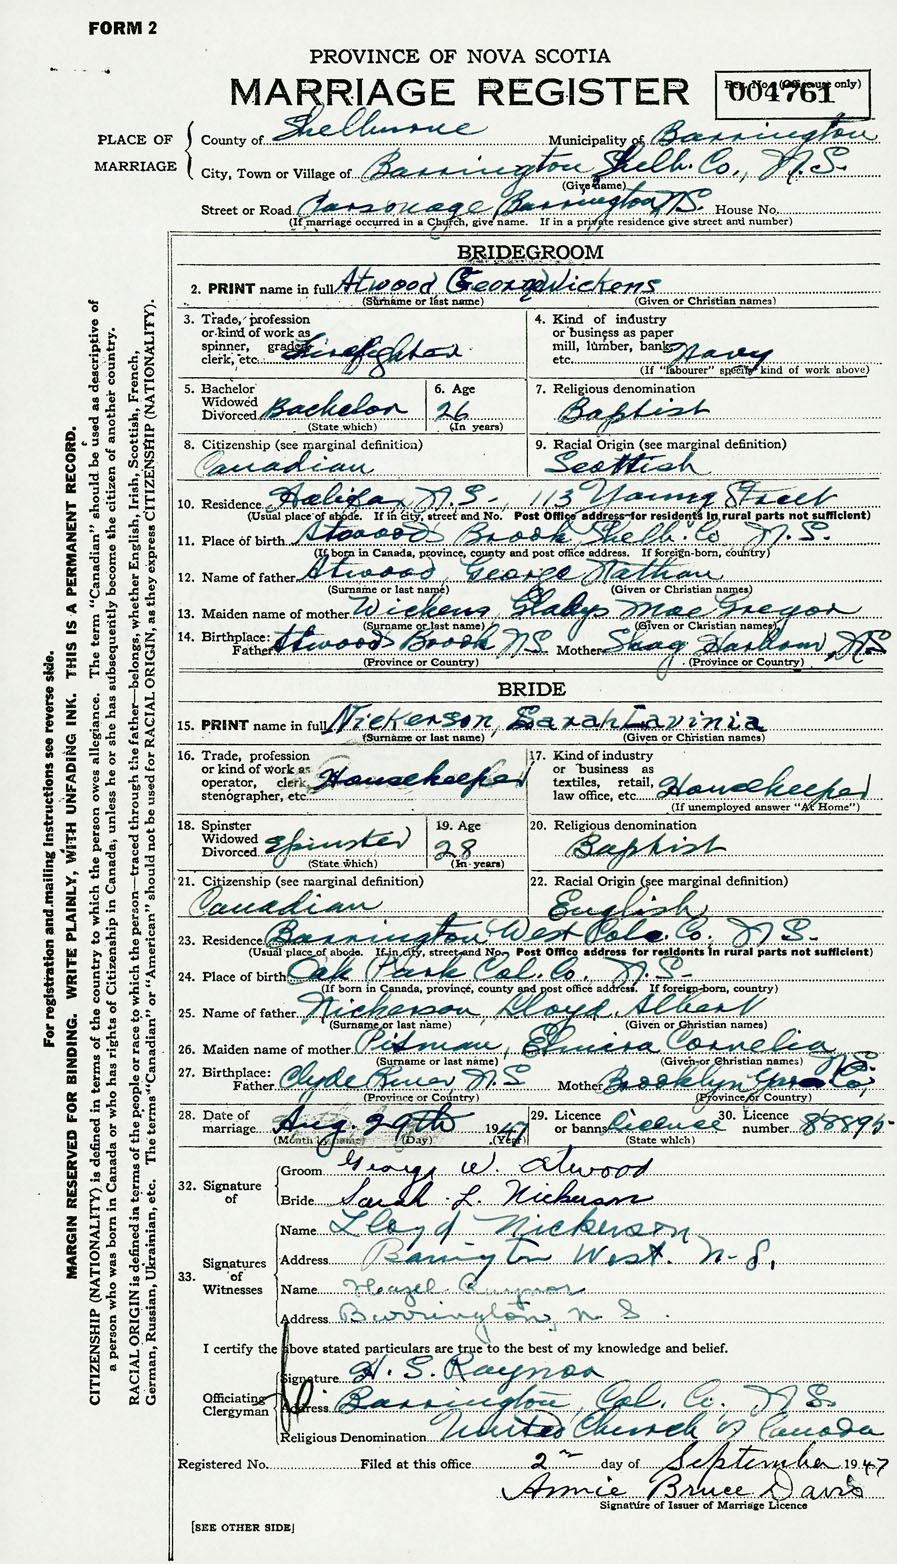 FORM 2
PROVINCE OF NOVA SCOTIA
MARRIAGE REGISTER
Reg. No. (Office use only)
004761
PLACE OF MARRIAGE
County of Shelburne Municipality of Barrington
City, Town or Village of Barrington Shelb. Co., N.S.
(Give name)
Street or Road Parsonage Barrington N.S. House No.
(If marriage occurred in a Church, give name. If in a private residence give street and number)
BRIDEGROOM
2. PRINT name in full Atwood George Wickens
(Surname or last name) (Given or Christian names)
3. Trade, profession or kind of work as spinner, grader, clerk, etc. Firefighter
4. Kind of industry or business as paper mill, lumber, bank, etc. Navy
(If "labourer" specify kind of work above)
5. Bachelor Widowed Divorced Bachelor
(State which)
6. Age 26
(In years)
7. Religious denomination Baptist
8. Citizenship (see marginal definition) Canadian
9. Racial Origin (see marginal definition) Scottish
10. Residence Halifax N.S. 113 Young Street
(Usual place of abode. If in city, street and No. Post Office address for residents in rural parts not sufficient)
11. Place of birth Atwoods Brook Shelb. Co N.S.
(If born in Canada, province, county and post office address. If foreign-born, country)
12. Name of father Atwood, George Nathan
(Surname or last name) (Given or Christian names)
13. Maiden name of mother Wickens Gladys MacGregor
(Surname or last name) (Given or Christian names)
14. Birthplace: Father Atwoods Brook N.S. Mother Shag Harbour, N.S
(Province or Country) (Province or Country)
BRIDE
15. PRINT name in full Nickerson, Sarah Lavinia
(Surname or last name) (Given or Christian names)
16. Trade, profession or kind of work as operator, clerk, stenographer, etc. Housekeeper
17. Kind of industry or business as textiles, retail, law office, etc. Housekeeper
(If unemployed answer "At Home")
18. Spinster Widowed Divorced Spinster
(State which)
19. Age 28
(In years)
20. Religious denomination Baptist
21. Citizenship (see marginal definition) Canadian
22. Racial Origin (see marginal definition) English
23. Residence Barrington West Co. N.S.
(Usual place of abode. If in city, street and No. Post Office address for residents in rural parts not sufficient)
24. Place of birth Oak Park Col. Co. N.S.
(If born in Canada, province, county and post office address. If foreign-born, country)
25. Name of father Nickerson, Lloyd Albert
(Surname or last name) (Given or Christian names)
26. Maiden name of mother Pitman, Elmira Cornelia
(Surname or last name) (Given or Christian names)
27. Birthplace: Father Clyde River N.S Mother Brooklyn Co, N.S.
(Province or Country) (Province or Country)
28. Date of marriage Aug. 29th 1947
(Month by name) (Day) (Year)
29. Licence or banns license
(State which)
30. Licence number 88895
32. Signature of
Groom George W. Atwood
Bride Sarah L. Nickerson
33. Signatures of Witnesses
Name Lloyd Nickerson
Address Barrington West. N-S,
Name Hazel Raynor
Address Barrington, N S.
I certify the above stated particulars are true to the best of my knowledge and belief.
Officiating Clergyman
Signature H. S. Raynor
Address Barrington, Col. Co. N S.
Religious Denomination United Church of Canada
Registered No. Filed at this office 2nd day of September 1947
Annie Bruce Davis
Signature of Issuer of Marriage Licence
[SEE OTHER SIDE]
For registration and mailing instructions see reverse side.
MARGIN RESERVED FOR BINDING. WRITE PLAINLY, WITH UNFADING INK. THIS IS A PERMANENT RECORD.
CITIZENSHIP (NATIONALITY) is defined in terms of the country to which the person owes allegiance. The term "Canadian" should be used as descriptive of
a person who was born in Canada or who has rights of Citizenship in Canada, unless he or she has subsequently become the citizen of another country.
RACIAL ORIGIN is defined in terms of the people or race to which the person—traced through the father—belongs, whether English, Irish, Scottish, French,
German, Russian, Ukrainian, etc. The terms "Canadian" or "American" should not be used for RACIAL ORIGIN, as they express CITIZENSHIP (NATIONALITY).